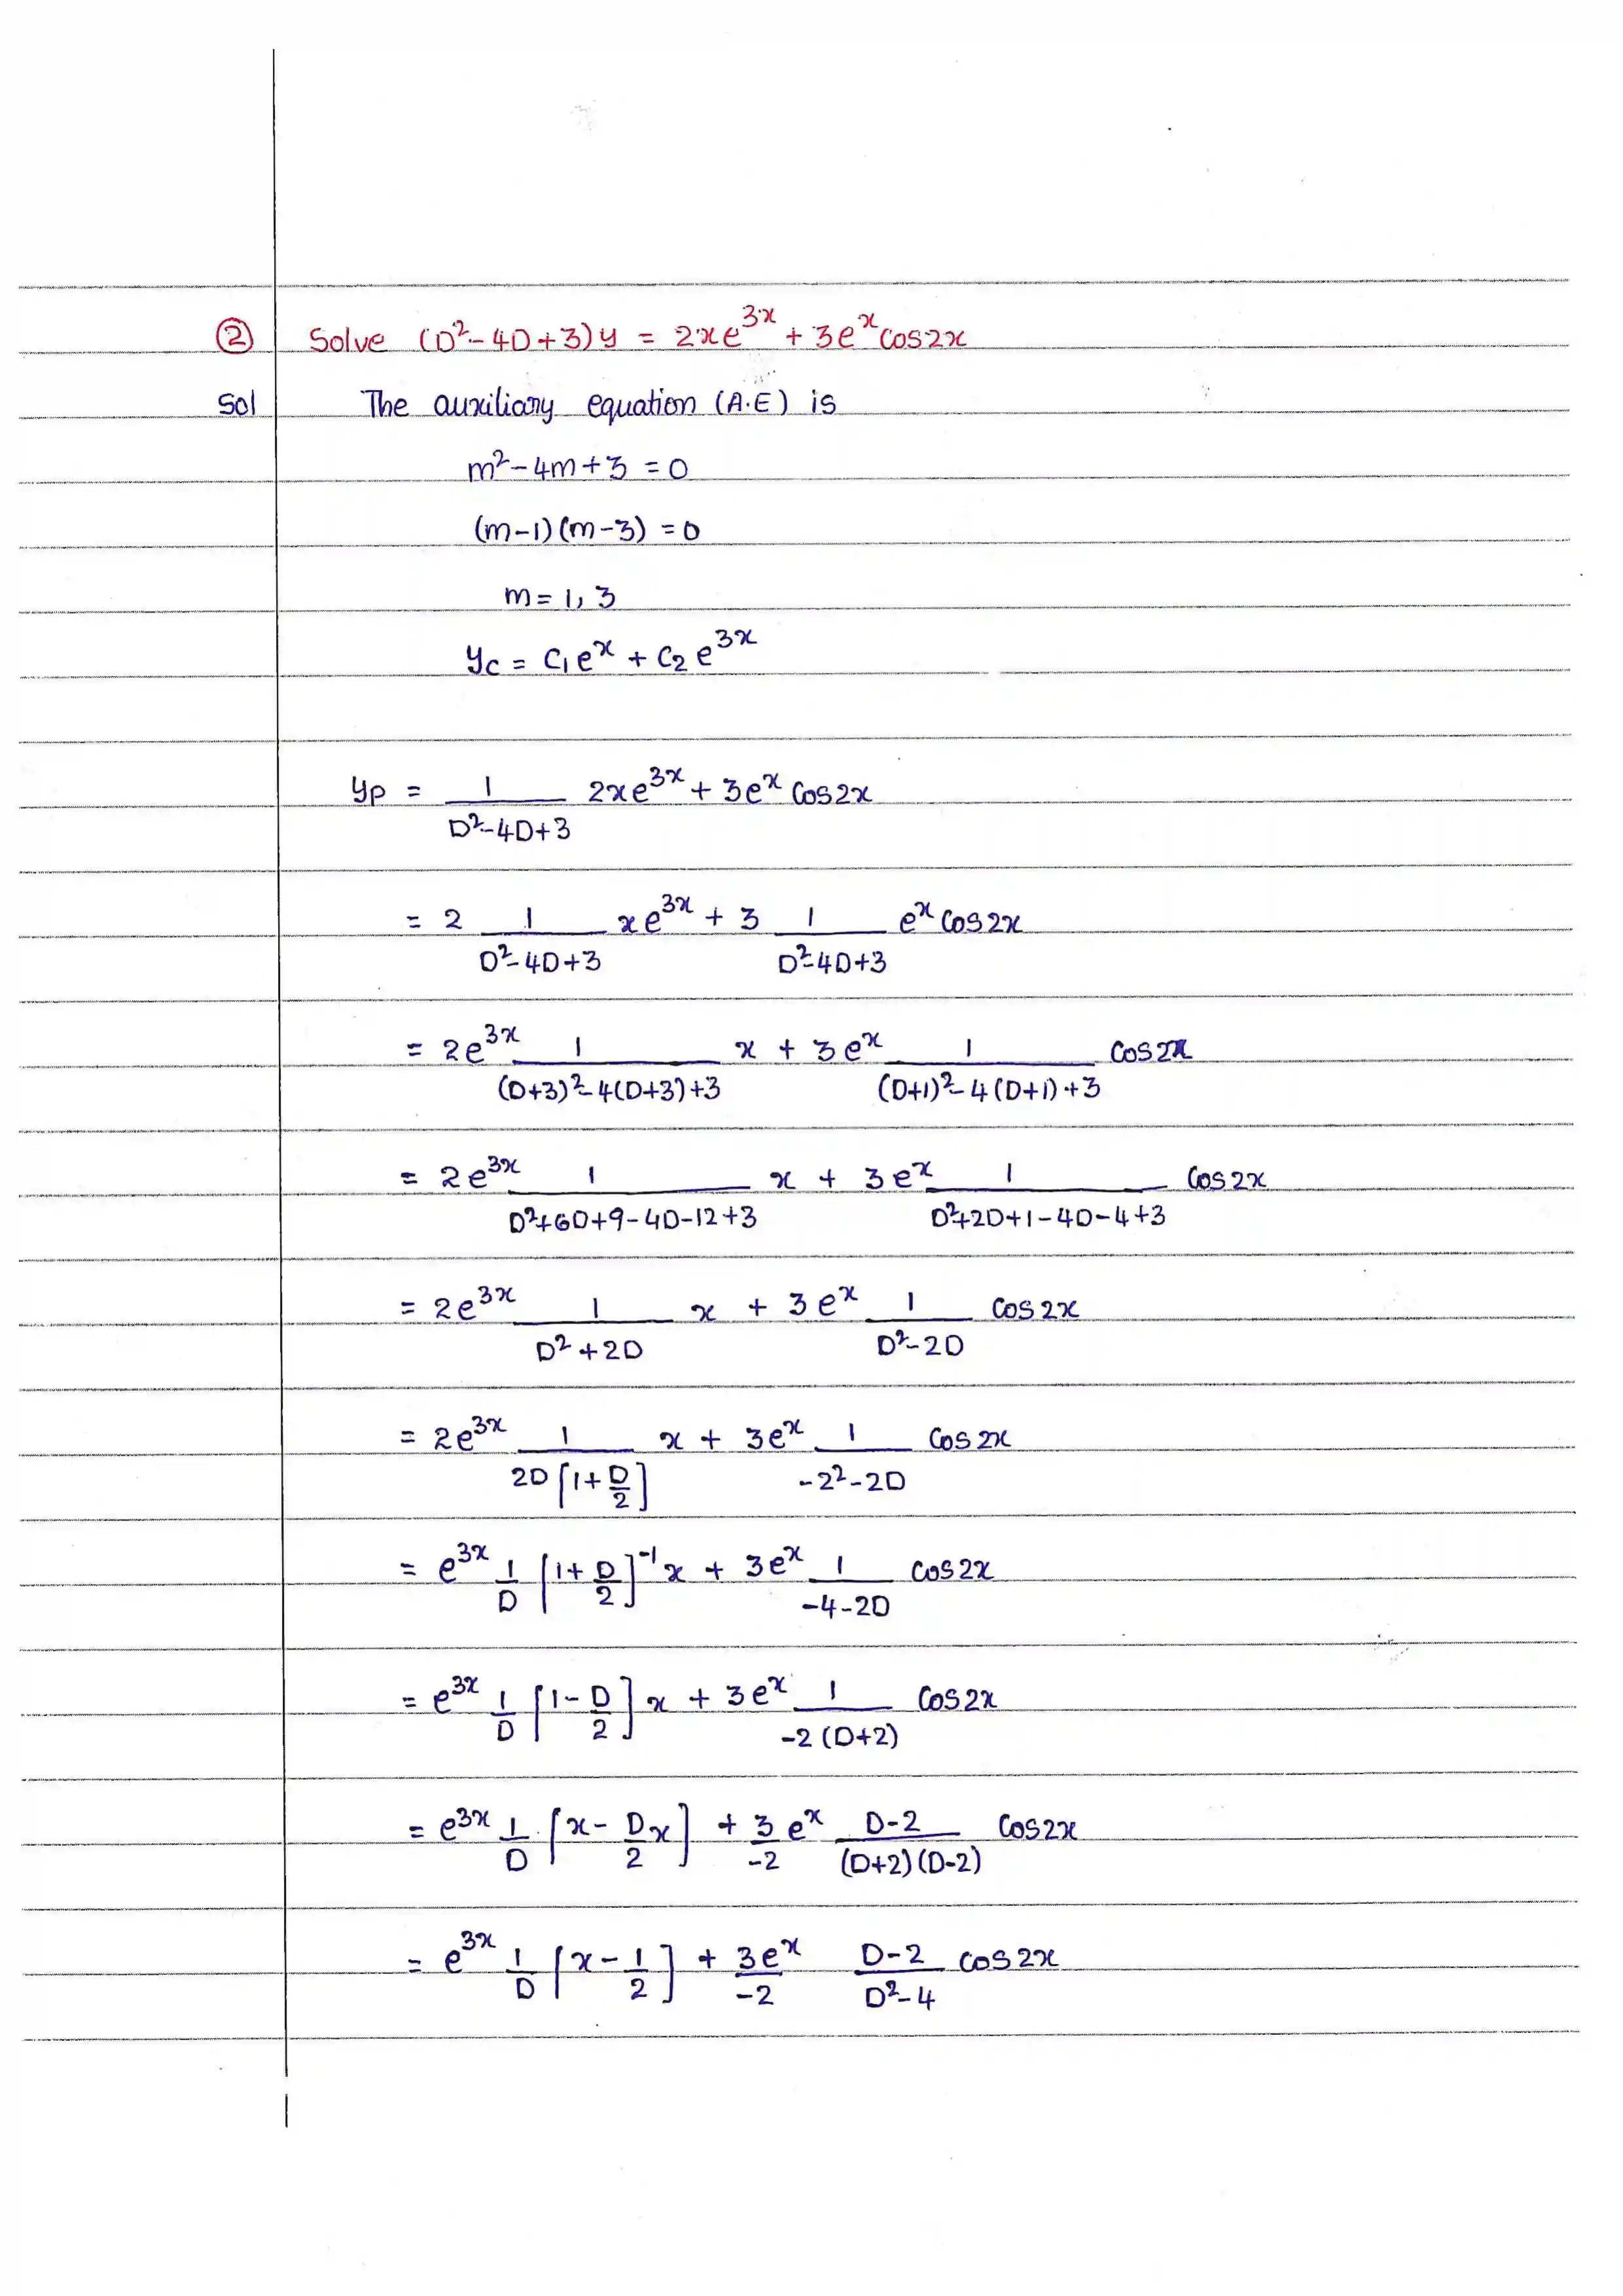 ② Solve (D²-4D+3)y = 2xe^{3x} + 3e^x cos2x
Sol The auxiliary equation (A.E) is
m²-4m+3 = 0
(m-1)(m-3) = 0
m = 1, 3
y_c = c₁e^x + c₂e^{3x}
y_p = \frac{1}{D²-4D+3} 2xe^{3x} + 3e^x cos2x
= 2 \frac{1}{D²-4D+3} xe^{3x} + 3 \frac{1}{D²-4D+3} e^x cos2x
= 2e^{3x} \frac{1}{(D+3)²-4(D+3)+3} x + 3e^x \frac{1}{(D+1)²-4(D+1)+3} cos2x
= 2e^{3x} \frac{1}{D²+6D+9-4D-12+3} x + 3e^x \frac{1}{D²+2D+1-4D-4+3} cos2x
= 2e^{3x} \frac{1}{D²+2D} x + 3e^x \frac{1}{D²-2D} cos2x
= 2e^{3x} \frac{1}{2D[1+\frac{D}{2}]} x + 3e^x \frac{1}{-2²-2D} cos2x
= e^{3x} \frac{1}{D} [1+\frac{D}{2}]^{-1} x + 3e^x \frac{1}{-4-2D} cos2x
= e^{3x} \frac{1}{D} [1-\frac{D}{2}] x + 3e^x \frac{1}{-2(D+2)} cos2x
= e^{3x} \frac{1}{D} [x-\frac{Dx}{2}] + \frac{3}{-2} e^x \frac{D-2}{(D+2)(D-2)} cos2x
= e^{3x} \frac{1}{D} [x-\frac{1}{2}] + \frac{3e^x}{-2} \frac{D-2}{D²-4} cos2x